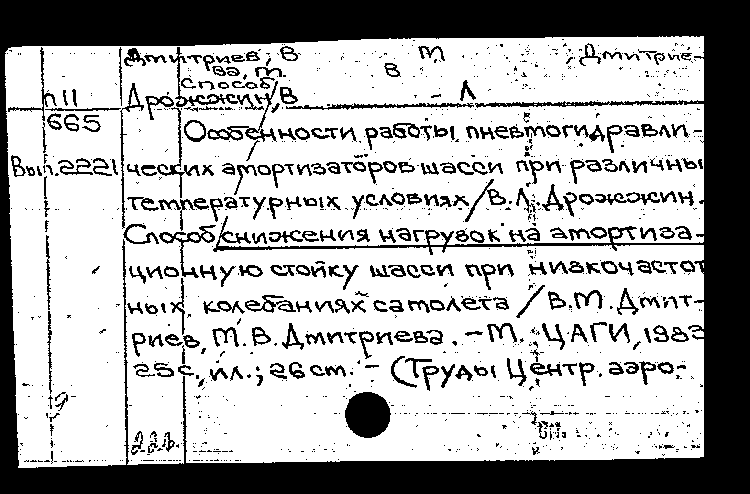 Дмитриев, В М Дмитрие-
ва, М. В
Способ/
П11 Дрожжин, В - Л
665 Особенности работы пневмогидравли-
Вып.2221 ческих амортизаторов шасси при различны
температурных условиях / В.Л. Дрожжин.
Способ снижения нагрузок на амортиза-
ционную стойку шасси при низкочастот
ных колебаниях самолета / В.М. Дмит-
риев, М.В. Дмитриева. - М. : ЦАГИ, 1983
25 с., ил.; 26 см. - (Труды Центр. аэро-